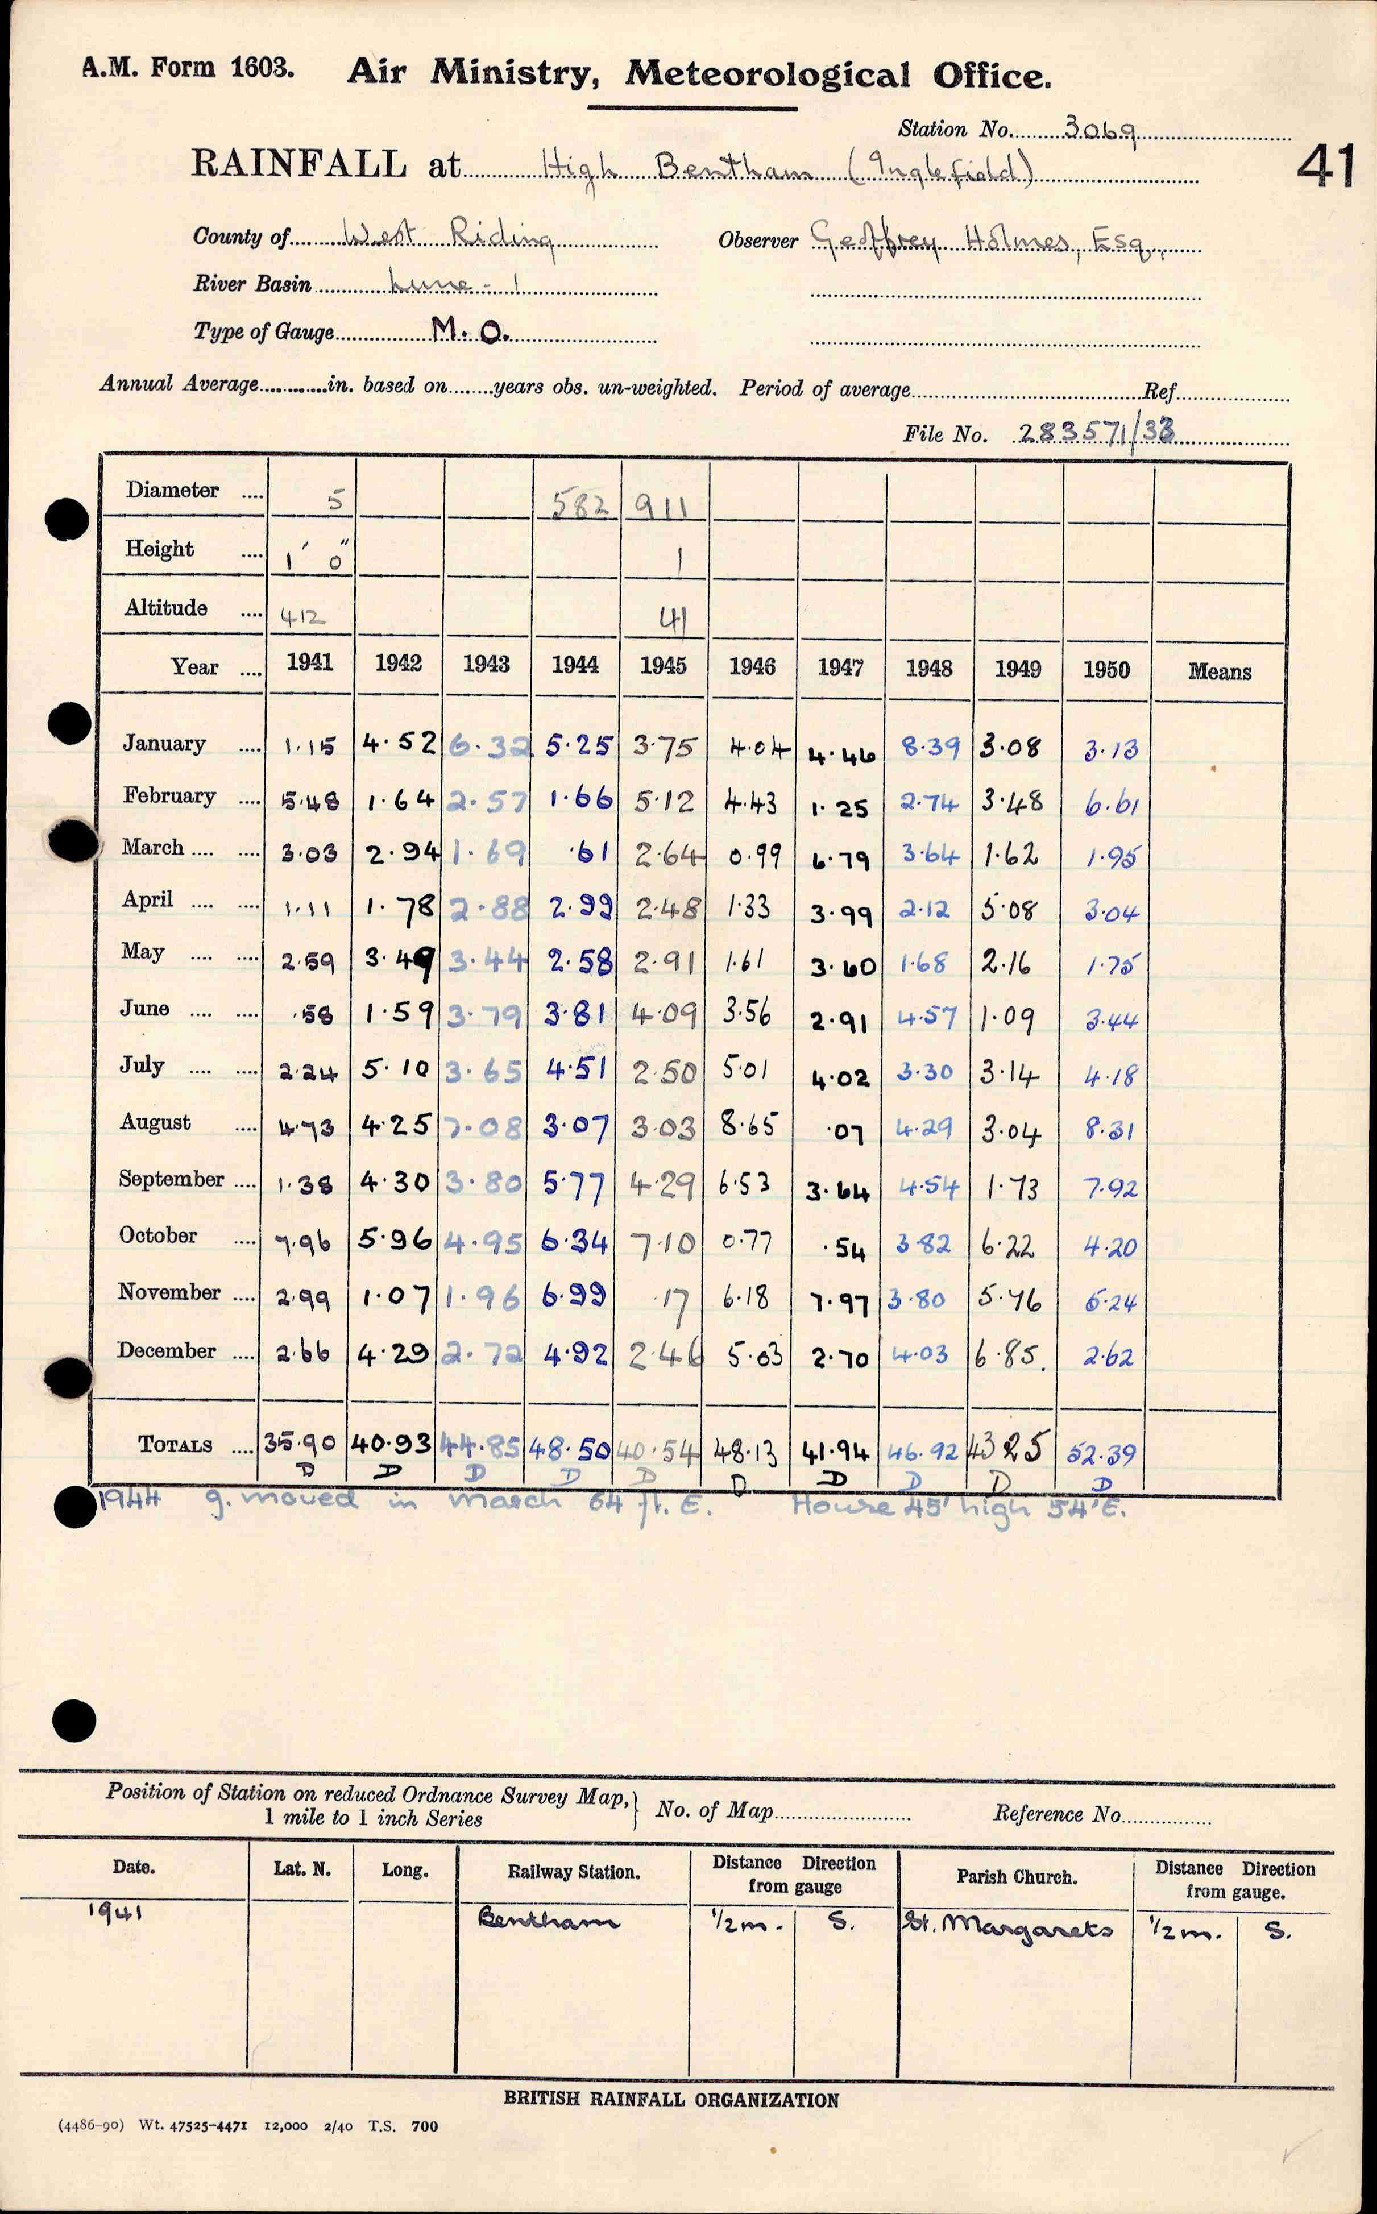 A.M. Form 1603. Air Ministry, Meteorological Office.
Station No. 3069
RAINFALL at High Bentham (Inglefield) 41
County of West Riding Observer Geoffrey Holmes, Esq.,
River Basin Lune - 1
Type of Gauge M.O.
Annual Average in. based on years obs. un-weighted. Period of average Ref.
File No. 283571/33
Diameter .... 5 582 911
Height .... 1' 0" 1
Altitude .... 412 41
Year .... 1941 1942 1943 1944 1945 1946 1947 1948 1949 1950 Means
January .... 1.15 4.52 6.32 5.25 3.75 4.04 4.46 8.39 3.08 3.13
February .... 5.48 1.64 2.57 1.66 5.12 4.43 1.25 2.74 3.48 6.61
March .... .... 3.03 2.94 1.69 .61 2.64 0.99 6.79 3.64 1.62 1.95
April .... .... 1.11 1.78 2.88 2.99 2.48 1.33 3.99 2.12 5.08 3.04
May .... .... 2.59 3.49 3.44 2.58 2.91 1.61 3.60 1.68 2.16 1.75
June .... .... .58 1.59 3.79 3.81 4.09 3.56 2.91 4.57 1.09 3.44
July .... .... 2.24 5.10 3.65 4.51 2.50 5.01 4.02 3.30 3.14 4.18
August .... 4.73 4.25 7.08 3.07 3.03 8.65 .07 4.29 3.04 8.31
September .... 1.38 4.30 3.80 5.77 4.29 6.53 3.64 4.54 1.73 7.92
October .... 7.96 5.96 4.95 6.34 7.10 0.77 .54 3.82 6.22 4.20
November .... 2.99 1.07 1.96 6.99 .17 6.18 7.97 3.80 5.76 5.24
December .... 2.66 4.29 2.72 4.92 2.46 5.03 2.70 4.03 6.85 2.62
TOTALS .... 35.90 40.93 44.85 48.50 40.54 48.13 41.94 46.92 43 25 52.39
D D D D D D D D D D
1944 g. moved in march 64 ft. E. House 45' high 54' E.
Position of Station on reduced Ordnance Survey Map, 1 mile to 1 inch Series } No. of Map Reference No.
Date. Lat. N. Long. Railway Station. Distance Direction from gauge Parish Church. Distance Direction from gauge.
1941 Bentham 1/2 m. S. St. Margarets 1/2 m. S.
BRITISH RAINFALL ORGANIZATION
(4486-90) Wt. 47525-4471 12,000 2/40 T.S. 700